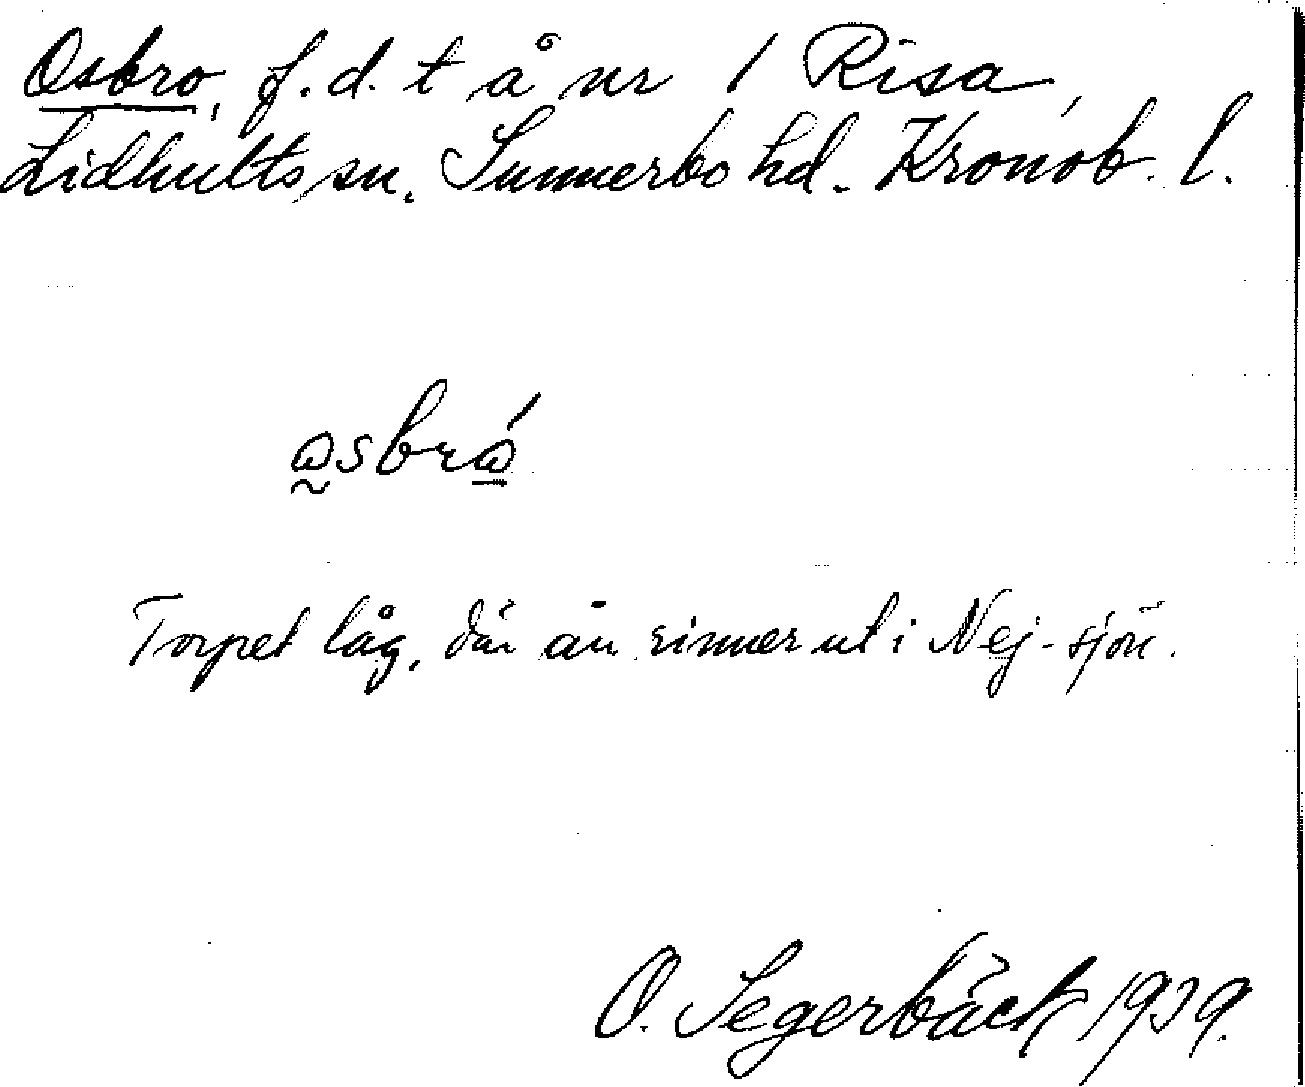 Osbro, f.d. t å nr 1 Risa,
Lidhults sn. Sunnerbo hd. Kronob. l.
Torpet låg, där ån rinner ut i Nej-sjön.
O. Segerbäck 1939.